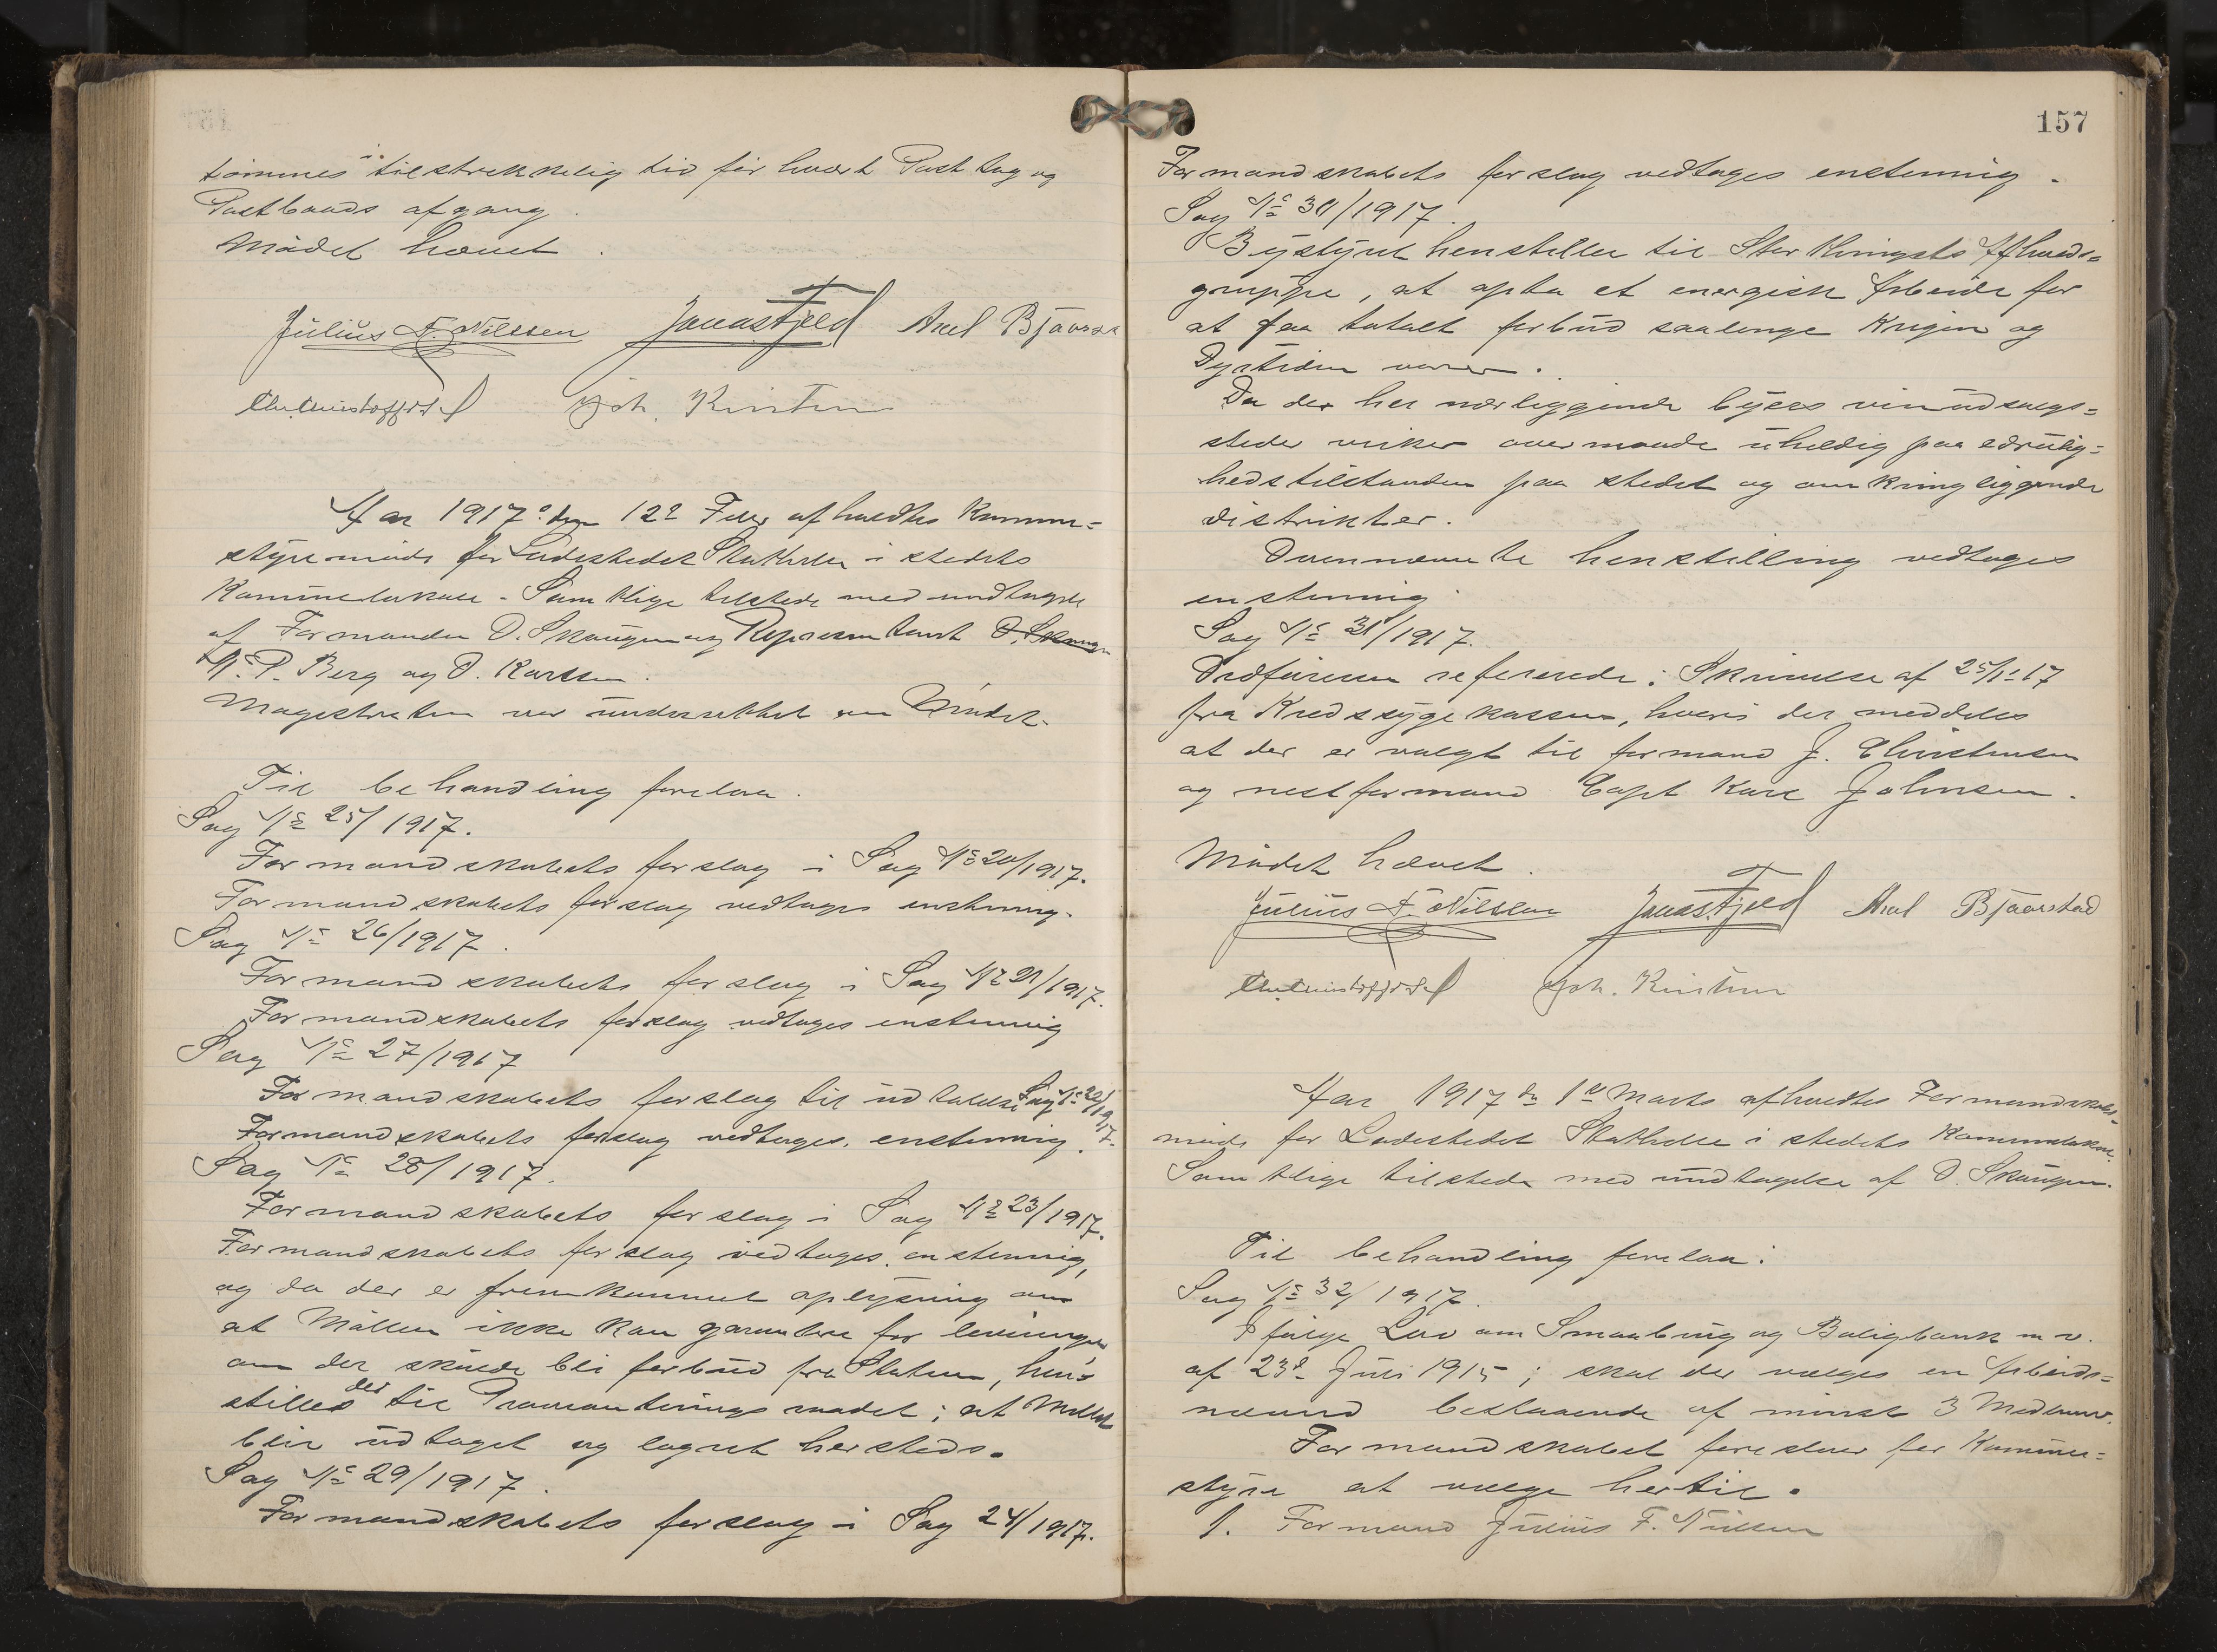 tömmes i tilstrekkelig tid før hvert Posttog og
Postbaads afgang.
Mödet hævet.
Julius F. Nilssen Jonas Fjeld Axel Bjaarstad
Joh. Kristensen
Aar 1917 den 12te Febr afholdtes Kommune=
styremöde for Ladestedet Stathelle i stedets
Kommunelokale. Samtlige tilstede med undtagelse
af Formanden O. Skaugen og Representant O. Skaugen
N. P. Berg og O. Karlsen.
Magistraten var underrettet om Mödet.
Til behandling forelaa.
Sag No 25/1917.
Formandskabets forslag i Sag No 20/1917.
Formandskabets forslag vedtages enstemmig.
Sag No 26/1917.
Formandskabets forslag i Sag No 21/1917.
Formandskabets forslag vedtages enstemmig
Sag No 27/1917
Formandskabets forslag til udtalelse Sag No 22/1917.
Formandskabets forslag vedtages enstemmig.
Sag No 28/1917.
Formandskabets forslag i Sag No 23/1917.
Formandskabets forslag vedtages enstemmig,
og da der er fremkommet oplysning om
at Möllen ikke kan garantere for leveringen
om der skulde bli forbud fra Staten, hen=
stilles det til Provianteringsraadet; at Mellet
blir udtaget og lagret hersteds.
Sag No 29/1917.
Formandskabets forslag i Sag 24/1917.
157
Formandskabets forslag vedtages enstemmig.
Sag No 30/1917.
Bystyret henstiller til Storthingets Afholds=
gruppe, at opta et energisk Arbeide for
at faa totalt forbud saalenge Krigen og
Dyrtiden varer.
Da de her nærliggende byers vinudsalgs=
steder virker overmaade uheldig paa ædruelig=
hedstilstanden paa stedet og omkringliggende
distrikter.
Ovennævnte henstilling vedtages
enstemmig.
Sag No 31/1917.
Ordføreren refererede: Skrivelse af 25/1-17
fra Kredssygekassen, hvori der meddeles
at der er valgt til formand J. Christensen
og nestformand Capt Karl Johnsen.
Mödet hævet.
Julius F. Nilssen Jonas Fjeld Axel Bjaarstad
Joh. Kristensen
Aar 1917 den 1te Marts afholdtes Formandskabs=
möde for Ladestedet Stathelle i stedets Kommunelokale.
Samtlige tilstede med undtagelse af O. Skaugen.
Til behandling forelaa:
Sag No 32/1917.
Ifölge Lov om Smaabrug og Boligbank m. v.
af 23de Juli 1915; skal der vælges en Arbeids=
nævnd bestaaende af minst 3 Medlemmer.
Formandskabet foreslaar for Kommune=
styre at vælge hertil.
1. Formand Julius F. Nilssen